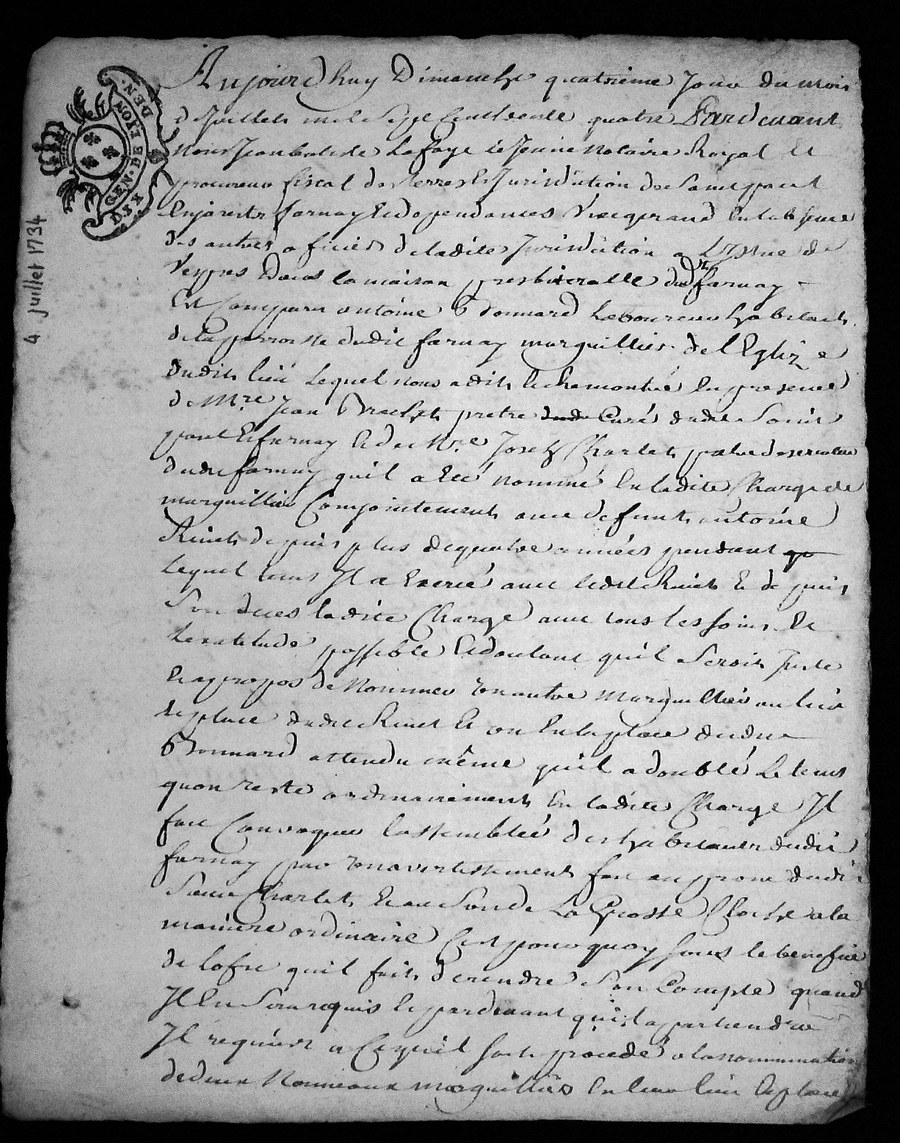 GEN. DE LYON
DEN.
DIX
4 juillet 1734
Aujourdhuy Dimanche quatrieme Jour du mois
de Juillet mil Sept Cent trente quatre Pardevant
Nous Jean batiste Lafaye Le Jeune Notaire Royal et
procureur fiscal des Terres et Jurisdiction de Saint paul
En jarest farnay Et dependances Vice gerand En labsence
des autres officiers de ladite Jurisdiction a Lissue de
Vespres dans la maison presbiteralle dudit farnay
Est Comparu antoine Bonnard Laboureur habitant
de la parroisse dudit farnay marguillier de l'Eglize
dudit lieu Lequel nous a dit et Remontré En presence
de Mre Jean Brachet pretre Curé dudit Saint
paul Et farnay Et de Mre Joseph Charlet pretre deservant
dudit farnay quil a Eté nommé En ladite Charge de
marguillier Conjointement avec defunt antoine
Rivet depuis plus de quatre années pendant
Lequel tems Il a Exercé avec ledit Rivet Et depuis
Son deces ladite Charge avec tous les soins Et
Lexatitude possible Et doutant quil Seroit Juste
Et apropos de Nommer un autre Marguillier au lieu
Et place dudit Rivet Et un En la place dudit
Bonnard attendu même quil a doublé Le tems
quon reste ordinairement En ladite Charge Il
fait Convoquer lassemblée des habitants dudit
farnay par un avertissement fait au prone dudit
Sieur Charlet Et au Son de La Grosse Cloche a la
maniere ordinaire Cest pourquoy sous le benefice
de lofre quil fait de rendre Son Compte quand
Il En Sera requis Et pardevant qui Il apartiendra
Il requiert a Ce quil soit procedé a la nommination
de deux Nouveaux marguilliers En leur lieu Et place